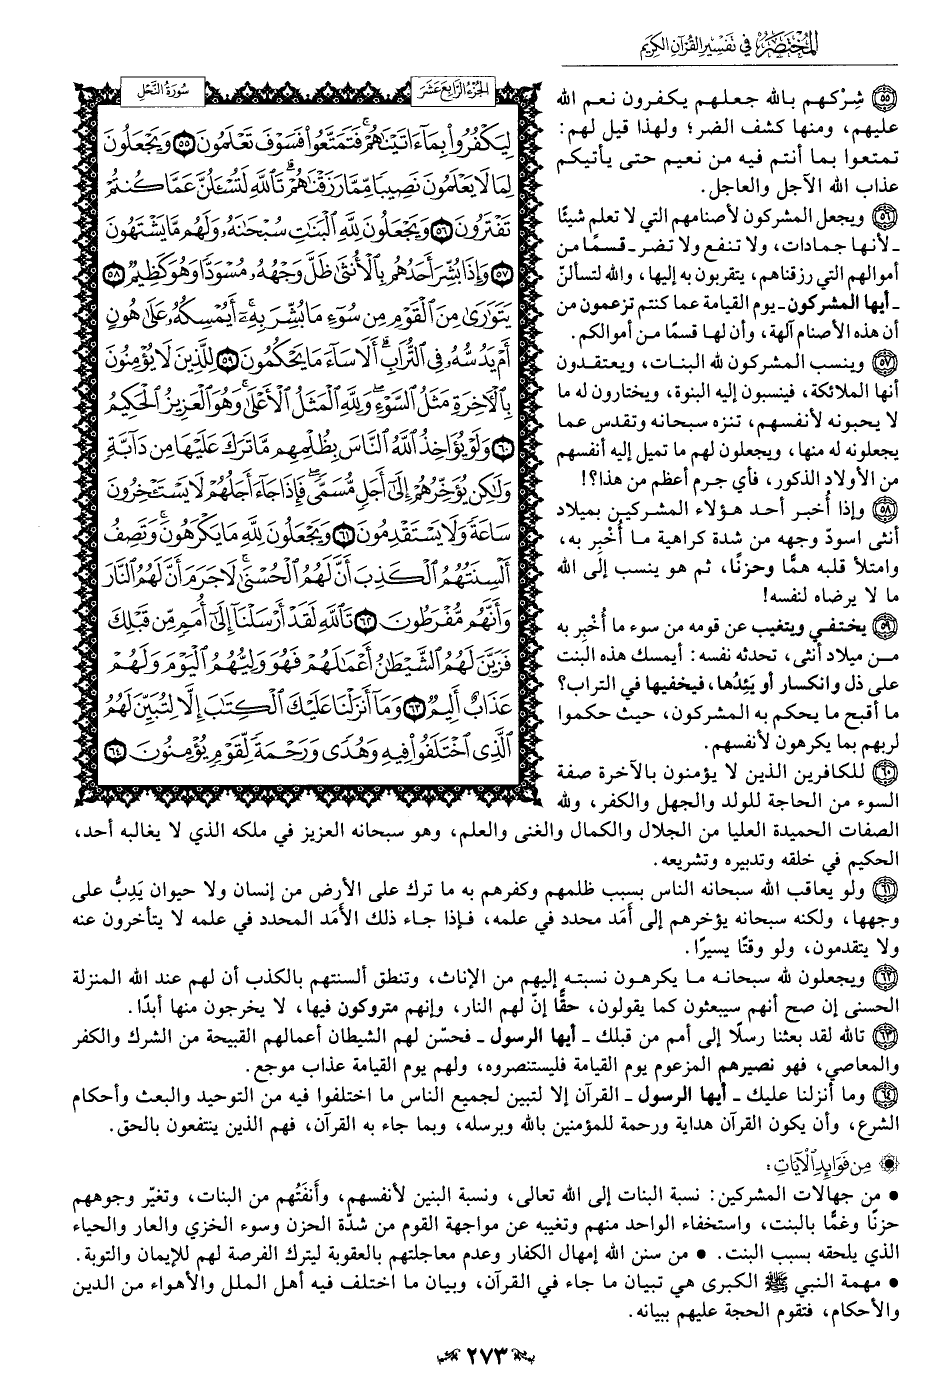 المختصر في تفسير القرآن الكريم
الجزء الرابع عشر
سورة النحل
لِيَكْفُرُوا۟ بِمَآ ءَاتَيْنَٰهُمْ ۚ فَتَمَتَّعُوا۟ فَسَوْفَ تَعْلَمُونَ ٥٥ وَيَجْعَلُونَ
لِمَا لَا يَعْلَمُونَ نَصِيبًا مِّمَّا رَزَقْنَٰهُمْ ۗ تَٱللَّهِ لَتُسْـَٔلُنَّ عَمَّا كُنتُمْ
تَفْتَرُونَ ٥٦ وَيَجْعَلُونَ لِلَّهِ ٱلْبَنَٰتِ سُبْحَٰنَهُۥ وَلَهُم مَّا يَشْتَهُونَ
٥٧ وَإِذَا بُشِّرَ أَحَدُهُم بِٱلْأُنثَىٰ ظَلَّ وَجْهُهُۥ مُسْوَدًّا وَهُوَ كَظِيمٌ ٥٨
يَتَوَٰرَىٰ مِنَ ٱلْقَوْمِ مِن سُوٓءِ مَا بُشِّرَ بِهِۦٓ ۚ أَيُمْسِكُهُۥ عَلَىٰ هُونٍ
أَمْ يَدُسُّهُۥ فِى ٱلتُّرَابِ ۗ أَلَا سَآءَ مَا يَحْكُمُونَ ٥٩ لِلَّذِينَ لَا يُؤْمِنُونَ
بِٱلْـَٔاخِرَةِ مَثَلُ ٱلسَّوْءِ ۖ وَلِلَّهِ ٱلْمَثَلُ ٱلْأَعْلَىٰ ۚ وَهُوَ ٱلْعَزِيزُ ٱلْحَكِيمُ
٦٠ وَلَوْ يُؤَاخِذُ ٱللَّهُ ٱلنَّاسَ بِظُلْمِهِم مَّا تَرَكَ عَلَيْهَا مِن دَآبَّةٍ
وَلَٰكِن يُؤَخِّرُهُمْ إِلَىٰٓ أَجَلٍ مُّسَمًّى ۖ فَإِذَا جَآءَ أَجَلُهُمْ لَا يَسْتَـْٔخِرُونَ
سَاعَةً وَلَا يَسْتَقْدِمُونَ ٦١ وَيَجْعَلُونَ لِلَّهِ مَا يَكْرَهُونَ وَتَصِفُ
أَلْسِنَتُهُمُ ٱلْكَذِبَ أَنَّ لَهُمُ ٱلْحُسْنَىٰ ۖ لَا جَرَمَ أَنَّ لَهُمُ ٱلنَّارَ
وَأَنَّهُم مُّفْرَطُونَ ٦٢ تَٱللَّهِ لَقَدْ أَرْسَلْنَآ إِلَىٰٓ أُمَمٍ مِّن قَبْلِكَ
فَزَيَّنَ لَهُمُ ٱلشَّيْطَٰنُ أَعْمَٰلَهُمْ فَهُوَ وَلِيُّهُمُ ٱلْيَوْمَ وَلَهُمْ
عَذَابٌ أَلِيمٌ ٦٣ وَمَآ أَنزَلْنَا عَلَيْكَ ٱلْكِتَٰبَ إِلَّا لِتُبَيِّنَ لَهُمُ
ٱلَّذِى ٱخْتَلَفُوا۟ فِيهِ ۙ وَهُدًى وَرَحْمَةً لِّقَوْمٍ يُؤْمِنُونَ ٦٤
٥٥ شِرْكهم بالله جعلهم يكفرون نعم الله
عليهم، ومنها كشف الضر؛ ولهذا قيل لهم:
تمتعوا بما أنتم فيه من نعيم حتى يأتيكم
عذاب الله الآجل والعاجل.
٥٦ ويجعل المشركون لأصنامهم التي لا تعلم شيئًا
ـ لأنها جمادات، ولا تنفع ولا تضر ـ قسمًا من
أموالهم التي رزقناهم، يتقربون به إليها، والله لتسألنّ
ـ أيها المشركون ـ يوم القيامة عما كنتم تزعمون من
أن هذه الأصنام آلهة، وأن لها قسمًا من أموالكم.
٥٧ وينسب المشركون لله البنات، ويعتقدون
أنها الملائكة، فينسبون إليه البنوة، ويختارون له ما
لا يحبونه لأنفسهم، تنزه سبحانه وتقدس عما
يجعلونه له منها، ويجعلون لهم ما تميل إليه أنفسهم
من الأولاد الذكور، فأي جرم أعظم من هذا؟!
٥٨ وإذا أُخبر أحد هؤلاء المشركين بميلاد
أنثى اسودّ وجهه من شدة كراهية ما أُخْبِر به،
وامتلأ قلبه همًّا وحزنًا، ثم هو ينسب إلى الله
ما لا يرضاه لنفسه!
٥٩ يختفي ويتغيب عن قومه من سوء ما أُخْبِر به
من ميلاد أنثى، تحدثه نفسه: أيمسك هذه البنت
على ذل وانكسار أو يَئِدُها، فيخفيها في التراب؟
ما أقبح ما يحكم به المشركون، حيث حكموا
لربهم بما يكرهون لأنفسهم.
٦٠ للكافرين الذين لا يؤمنون بالآخرة صفة
السوء من الحاجة للولد والجهل والكفر، ولله
الصفات الحميدة العليا من الجلال والكمال والغنى والعلم، وهو سبحانه العزيز في ملكه الذي لا يغالبه أحد،
الحكيم في خلقه وتدبيره وتشريعه.
٦١ ولو يعاقب الله سبحانه الناس بسبب ظلمهم وكفرهم به ما ترك على الأرض من إنسان ولا حيوان يَدِبُّ على
وجهها، ولكنه سبحانه يؤخرهم إلى أَمَد محدد في علمه، فإذا جاء ذلك الأَمَد المحدد في علمه لا يتأخرون عنه
ولا يتقدمون، ولو وقتًا يسيرًا.
٦٢ ويجعلون لله سبحانه ما يكرهون نسبته إليهم من الإناث، وتنطق ألسنتهم بالكذب أن لهم عند الله المنزلة
الحسنى إن صح أنهم سيبعثون كما يقولون، حقًّا إنّ لهم النار، وإنهم متروكون فيها، لا يخرجون منها أبدًا.
٦٣ تالله لقد بعثنا رسلًا إلى أمم من قبلك ـ أيها الرسول ـ فحسّن لهم الشيطان أعمالهم القبيحة من الشرك والكفر
والمعاصي، فهو نصيرهم المزعوم يوم القيامة فليستنصروه، ولهم يوم القيامة عذاب موجع.
٦٤ وما أنزلنا عليك ـ أيها الرسول ـ القرآن إلا لتبين لجميع الناس ما اختلفوا فيه من التوحيد والبعث وأحكام
الشرع، وأن يكون القرآن هداية ورحمة للمؤمنين بالله وبرسله، وبما جاء به القرآن، فهم الذين ينتفعون بالحق.
من فوائد الآيات:
• من جهالات المشركين: نسبة البنات إلى الله تعالى، ونسبة البنين لأنفسهم، وأَنفَتُهم من البنات، وتغيّر وجوههم
حزنًا وغمًّا بالبنت، واستخفاء الواحد منهم وتغيبه عن مواجهة القوم من شدّة الحزن وسوء الخزي والعار والحياء
الذي يلحقه بسبب البنت. • من سنن الله إمهال الكفار وعدم معاجلتهم بالعقوبة ليترك الفرصة لهم للإيمان والتوبة.
• مهمة النبي ﷺ الكبرى هي تبيان ما جاء في القرآن، وبيان ما اختلف فيه أهل الملل والأهواء من الدين
والأحكام، فتقوم الحجة عليهم ببيانه.
٢٧٣